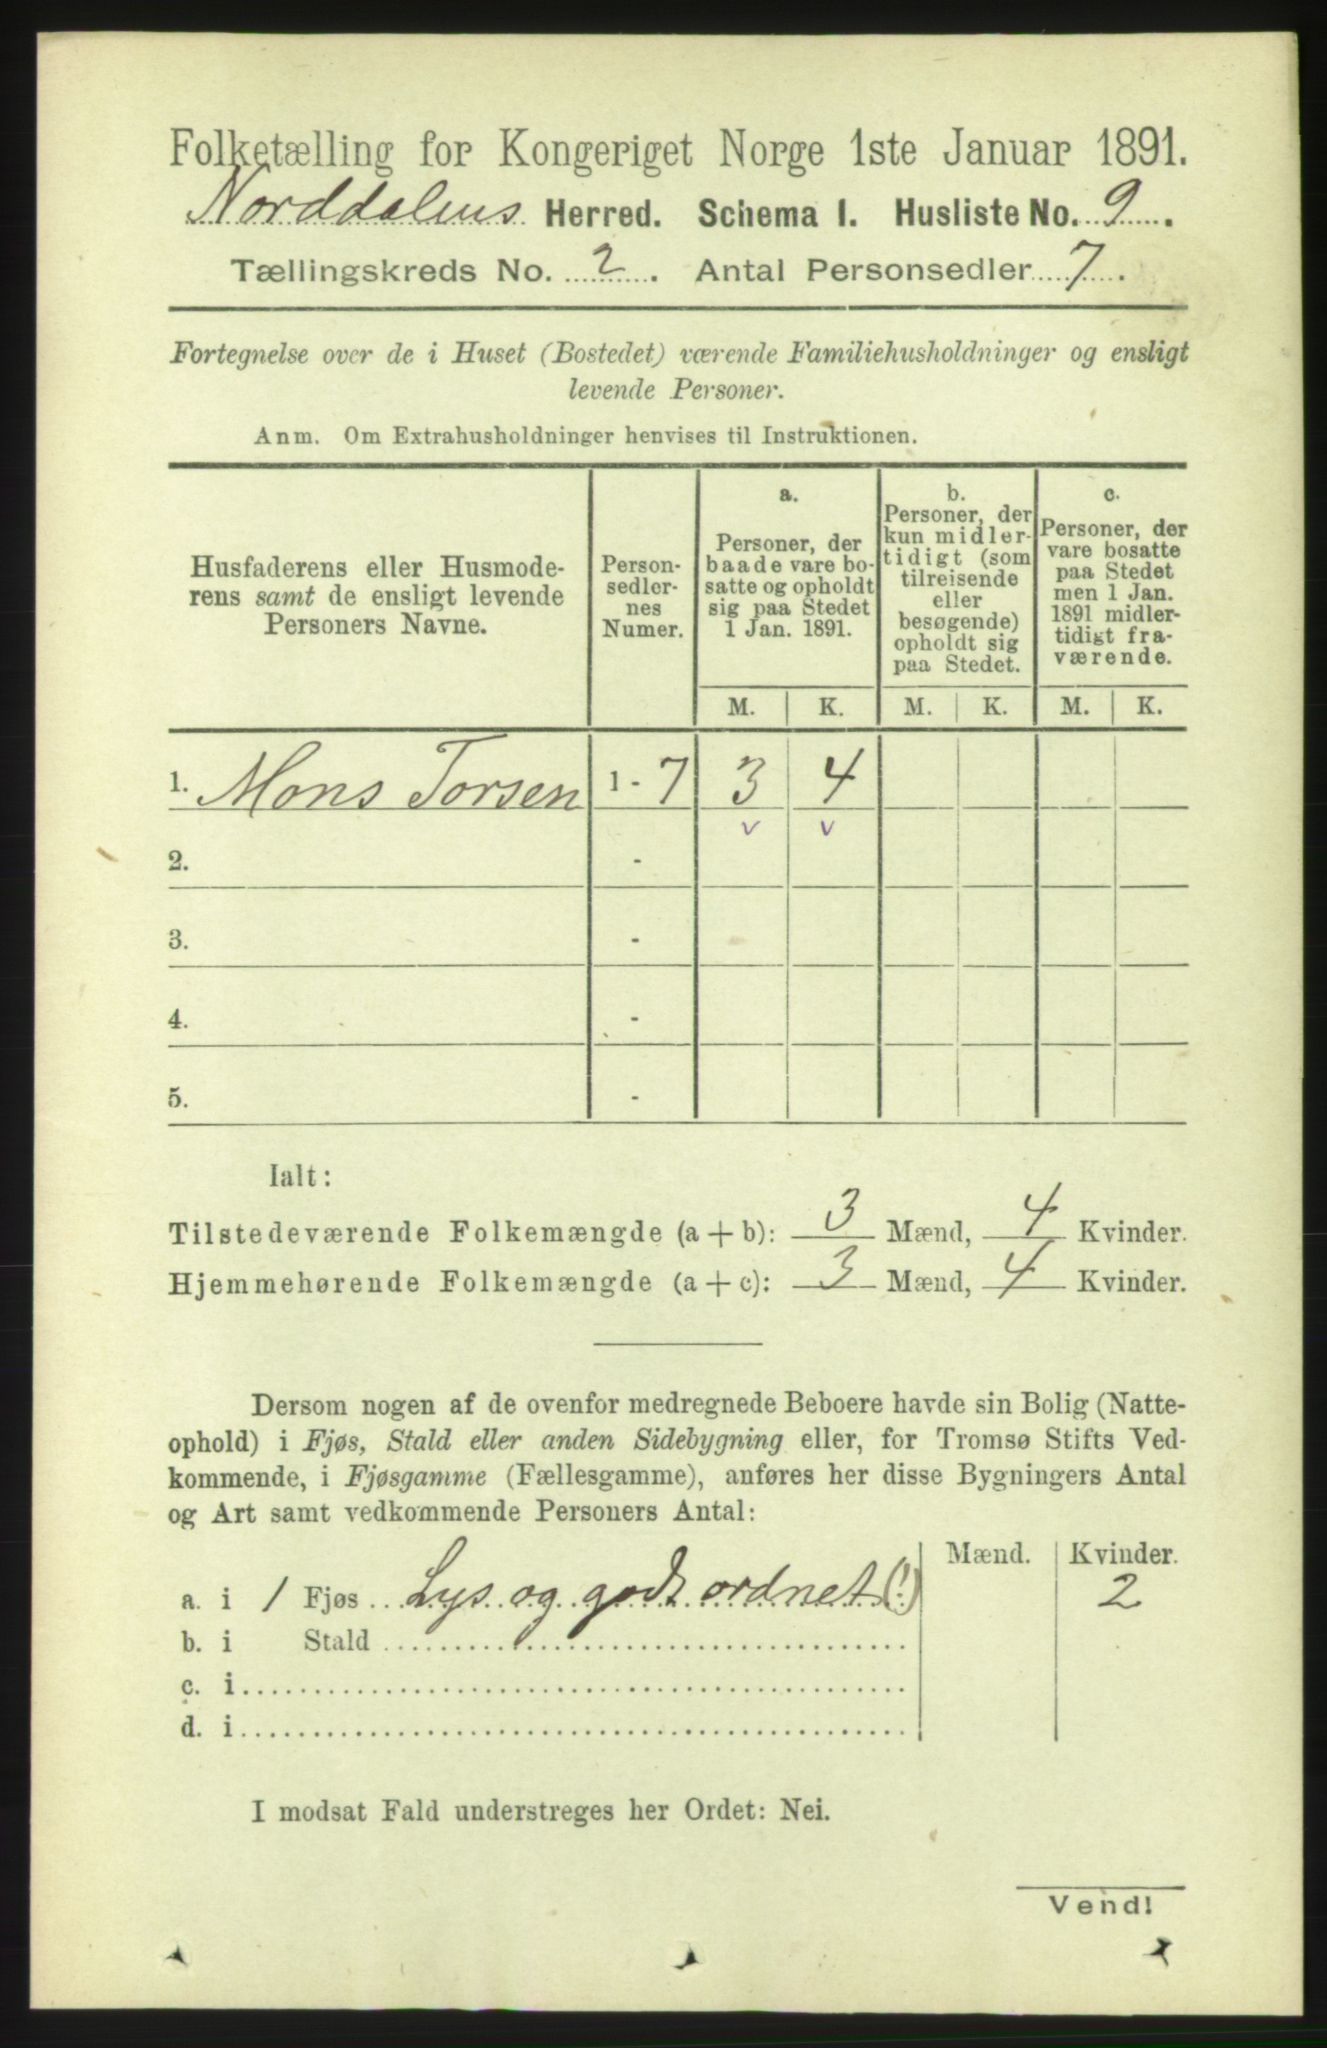 Folketælling for Kongeriget Norge 1ste Januar 1891.
Norddalens Herred. Schema 1. Husliste No. 9.
Tællingskreds No. 2. Antal Personsedler 7.
Fortegnelse over de i Huset (Bostedet) værende Familiehusholdninger og ensligt
levende Personer.
Anm. Om Extrahusholdninger henvises til Instruktionen.
Husfaderens eller Husmode-
rens samt de ensligt levende
Personers Navne.
Person-
sedler-
nes
Numer.
a.
Personer, der
baade vare bo-
satte og opholdt
sig paa Stedet
1 Jan. 1891.
b.
Personer, der
kun midler-
tidigt (som
tilreisende
eller
besøgende)
opholdt sig
paa Stedet.
c.
Personer, der
vare bosatte
paa Stedet
men 1 Jan.
1891 midler-
tidigt fra-
værende.
M. K. M. K. M. K.
1. Mons Torsen 1 - 7 3 4
v v
2. -
3. -
4. -
5. -
Ialt:
Tilstedeværende Folkemængde (a + b): 3 Mænd, 4 Kvinder.
Hjemmehørende Folkemængde (a + c): 3 Mænd, 4 Kvinder.
Dersom nogen af de ovenfor medregnede Beboere havde sin Bolig (Natte-
ophold) i Fjøs, Stald eller anden Sidebygning eller, for Tromsø Stifts Ved-
kommende, i Fjøsgamme (Fællesgamme), anføres her disse Bygningers Antal
og Art samt vedkommende Personers Antal:
Mænd. Kvinder.
a. i 1 Fjøs Lys og godt ordnet (!) 2
b. i Stald
c. i
d. i
I modsat Fald understreges her Ordet: Nei.
Vend!